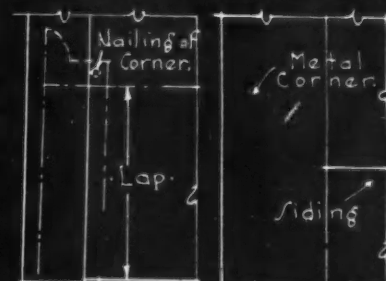 Nailing of
Corner.
Lap.
Metal
Corner.
Siding